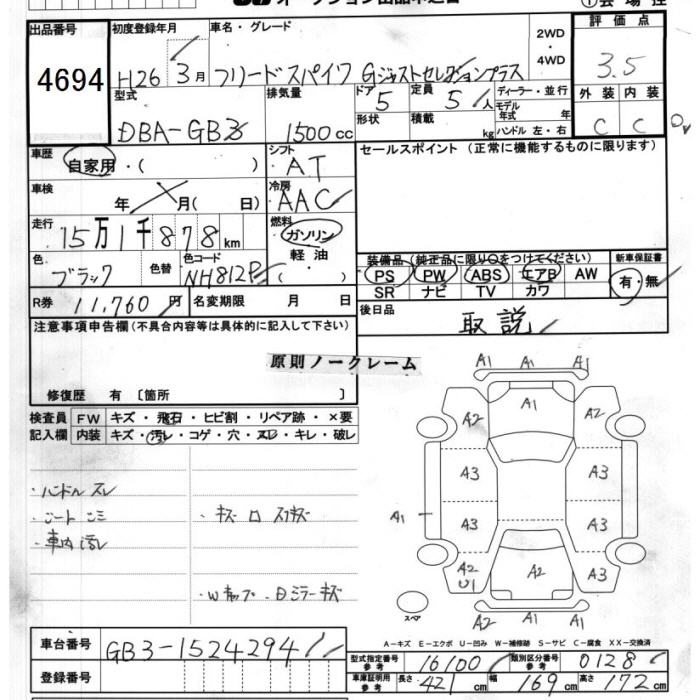 オークション出品車
出品番号 初度登録年月 車名・グレード 2WD・4WD 評価点
4694 H26 3月 フリードスパイク Gジャストセレクションプラス 3.5
型式 排気量 ドア 5 定員 5人 ディーラー・並行 外装 内装
DBA-GB3 1500cc 形状 積載 kg モデル年式 年 C C
ハンドル 左・右
車歴 自家用・( ) シフト AT セールスポイント (正常に機能するものに限ります)
車検 年 月( 日) 冷房 AAC
走行 15万1千878km 燃料 ガソリン 軽油 ( )
装備品 (純正品に限り○をつけてください) 新車保証書
色 ブラック 色替 色コード NH812P PS PW ABS エアB AW 有・無
SR ナビ TV カワ
R券 11,760円 名変期限 月 日 後日品 取説
注意事項申告欄(不具合内容等は具体的に記入して下さい)
原則ノークレーム
修復歴 有 [箇所 ]
検査員 FW キズ・飛石・ヒビ割・リペア跡・×要
記入欄 内装 キズ・汚レ・コゲ・穴・スレ・キレ・破レ
・ハンドル スレ
・シート シミ
・車内 汚レ
A1 A1 A1
A1
A2 A2
A3 A3
A1 A3 A3
A2 U1 A2 A3
A2 A1 A1
スペア
A-キズ E-エクボ U-凹み W-補修跡 S-サビ C-腐食 XX-交換済
車台番号 GB3-1524294 型式指定番号 参考 16100 類別区分番号 参考 0128
登録番号 車庫証明用 参考 長さ 421cm 幅 169cm 高さ 172cm